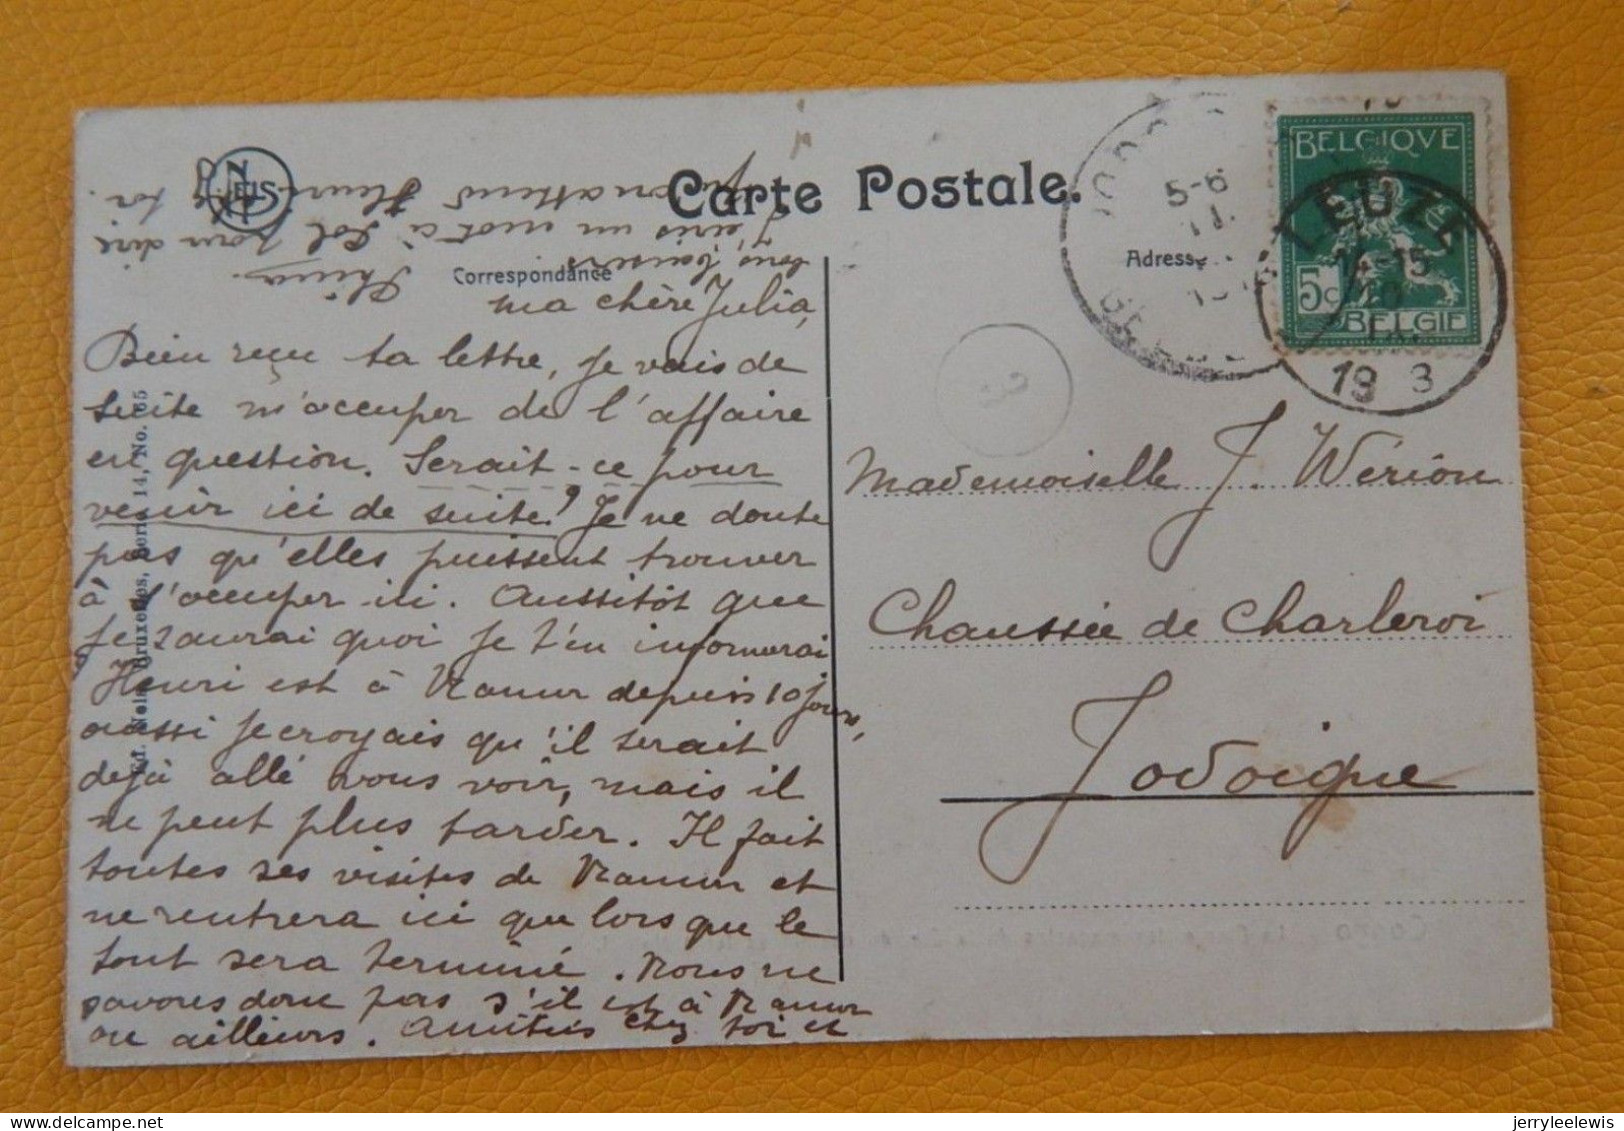 Carte Postale.
Correspondance
Adresse
NELS
BELGIQVE
5c
BELGIE
LEUZE
14-15
10
19 3
5-6
11
ma chère Julia,
Bien reçu ta lettre, je vais de
suite m'occuper de l'affaire
en question. Serait-ce pour
venir ici de suite? Je ne doute
pas qu'elles puissent trouver
à s'occuper ici. Aussitôt que
je saurai quoi je t'en informerai
Henri est à Namur depuis 10 jours,
aussi je croyais qu'il serait
dejà allé vous voir, mais il
ne peut plus tarder. Il fait
toutes ses visites de Namur et
ne rentrera ici que lorsque le
tout sera terminé. Nous ne
savons donc pas s'il est à Namur
ou ailleurs. Amitiés chez toi et
bons baisers
J'écris un mot à Sol pour dire
attend Henri
Mademoiselle J. Wérion
Chaussée de Charleroi
Jodoigne
Ed. Nels, Bruxelles, Série 14, No. 65